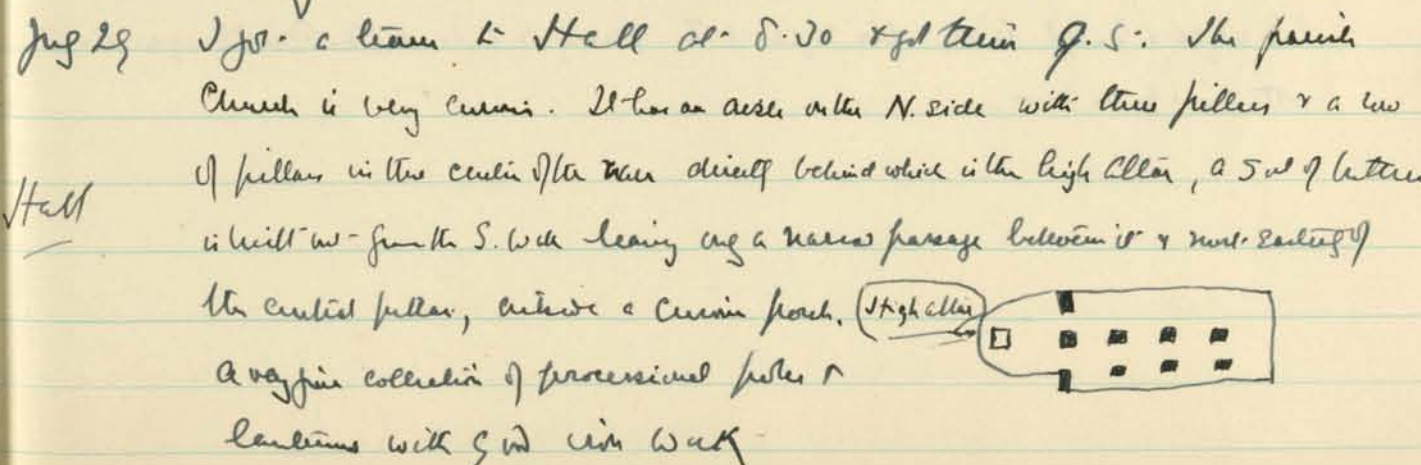 Aug 29 I got a tram to Hall at 8.30 & got there 9.5. The parish
Church is very curious. It has an aisle on the N. side with three pillars & a row
of pillars in the centre of the nave directly behind which is the high altar, a sort of buttress
Hall
is built out from the S. wall leaving only a narrow passage between it & most easterly of
the central pillars, outside a curious porch. High altar
A very fine collection of processional poles &
lanterns with good iron work